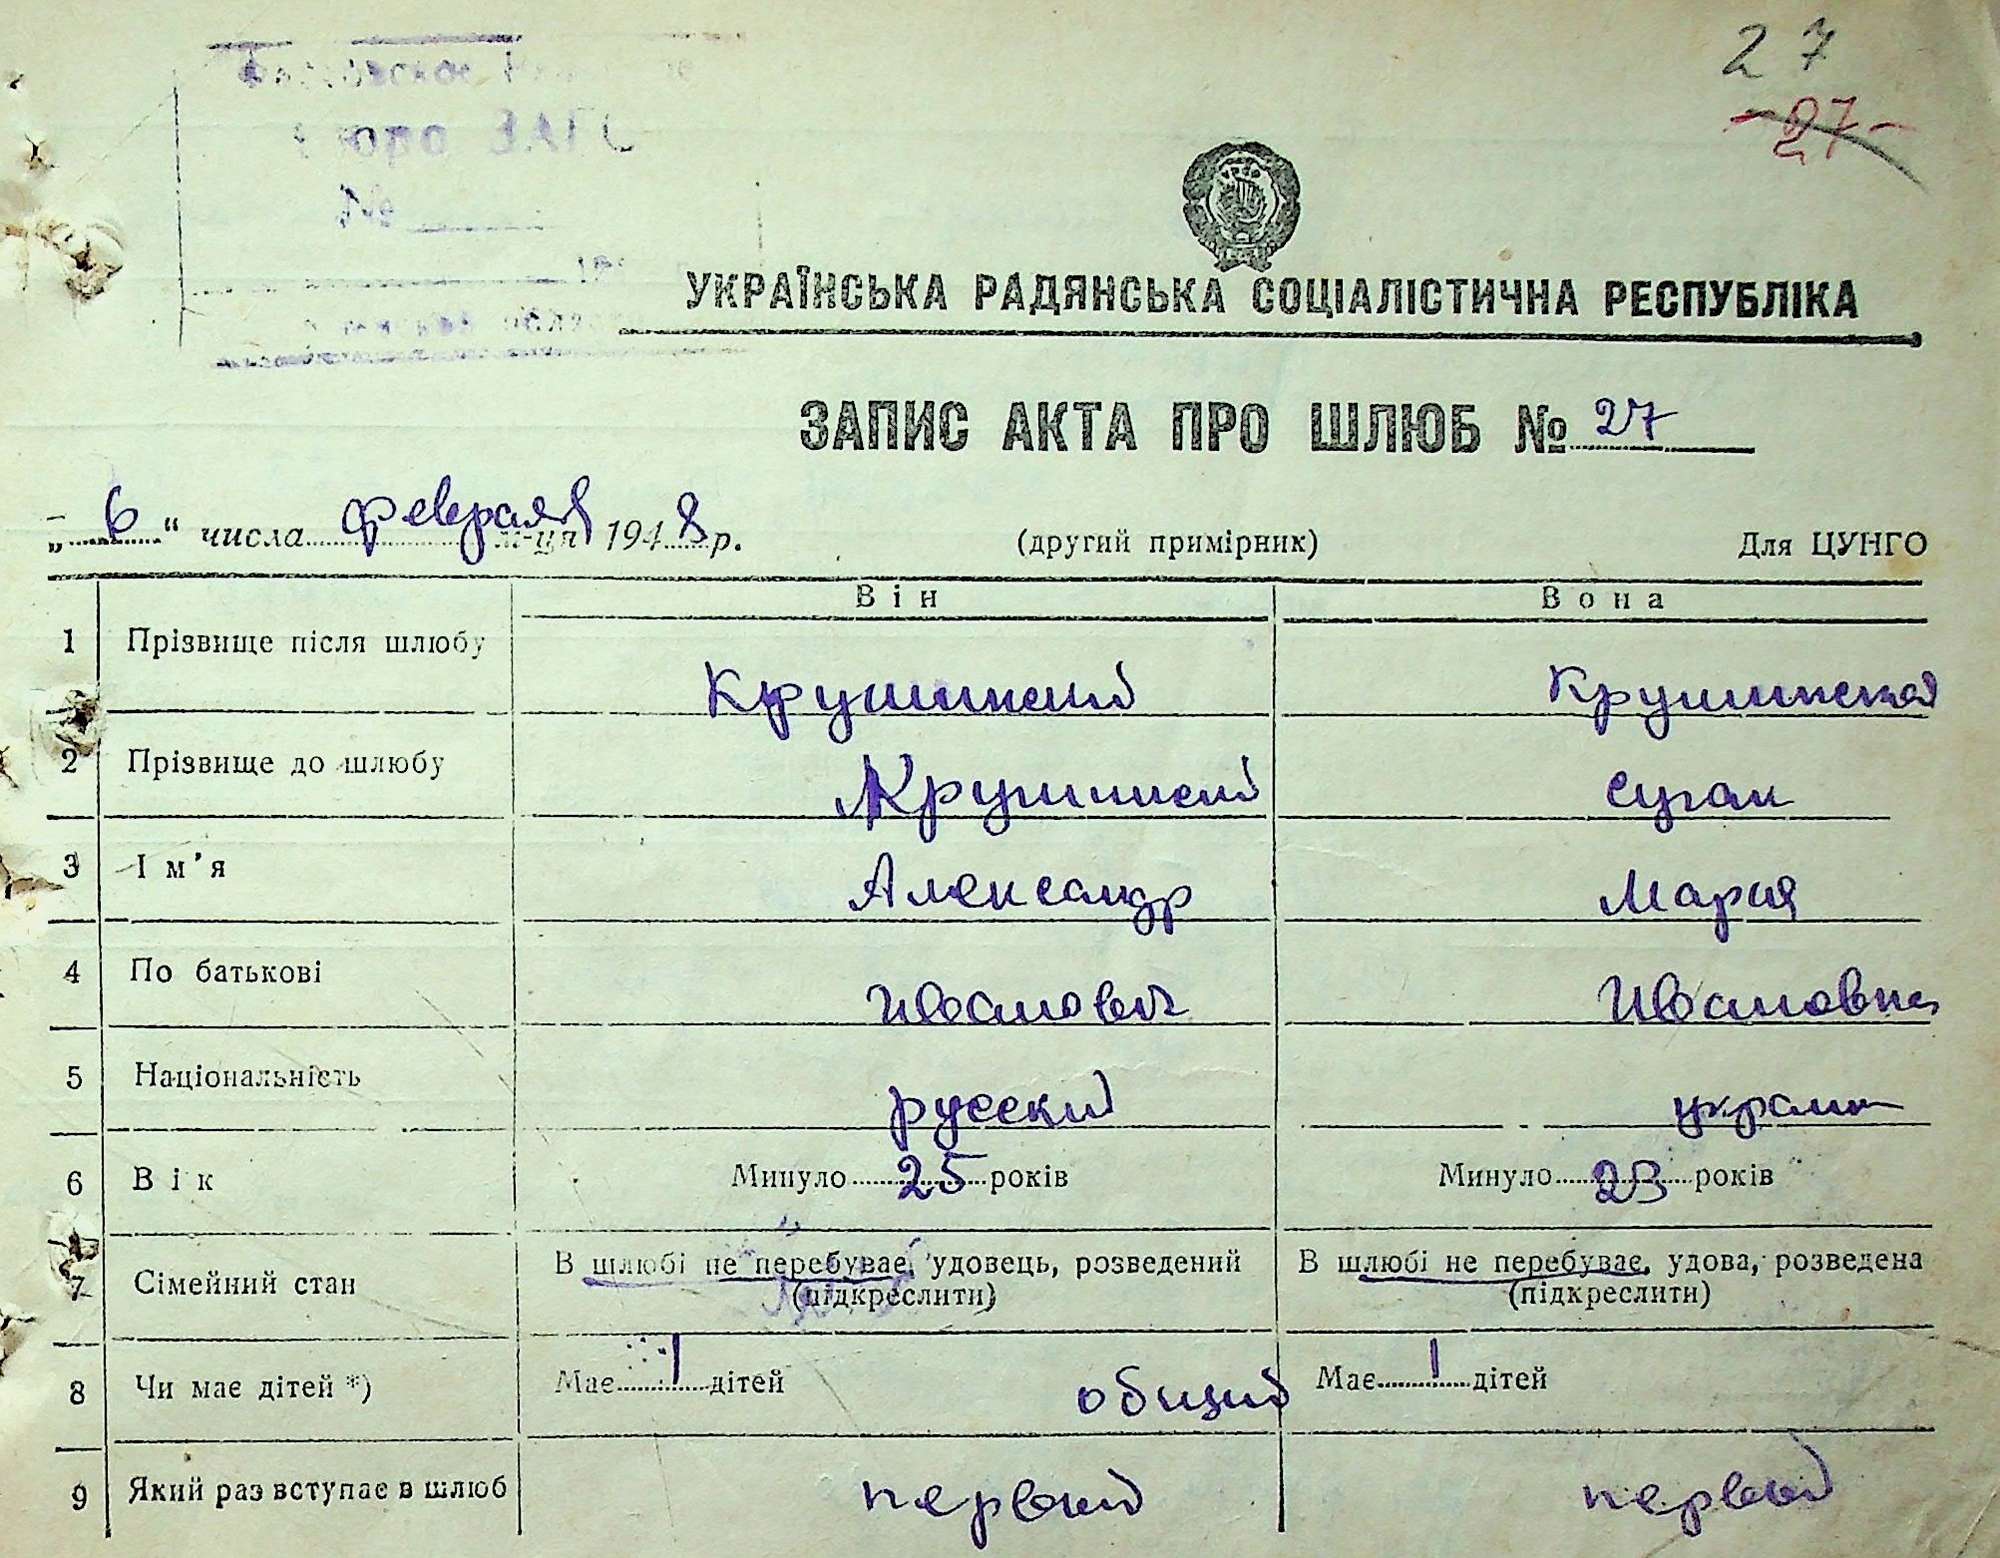 27
27
бюро ЗАГС
№
УКРАЇНСЬКА РАДЯНСЬКА СОЦІАЛІСТИЧНА РЕСПУБЛІКА
ЗАПИС АКТА ПРО ШЛЮБ № 27
„6“ числа февраля м-ця 1948 р. (другий примірник) Для ЦУНГО
Він Вона
1 Прізвище після шлюбу Крушинский Крушинская
2 Прізвище до шлюбу Крушинский
3 Ім’я Александр Мария
4 По батькові Иванович Ивановна
5 Національність русский украин
6 Вік Минуло 25 років Минуло 23 років
7 Сімейний стан В шлюбі не перебуває, удовець, розведений В шлюбі не перебуває, удова, розведена
(підкреслити) (підкреслити)
8 Чи має дітей *) Має 1 дітей общий Має 1 дітей
9 Який раз вступає в шлюб первый первый